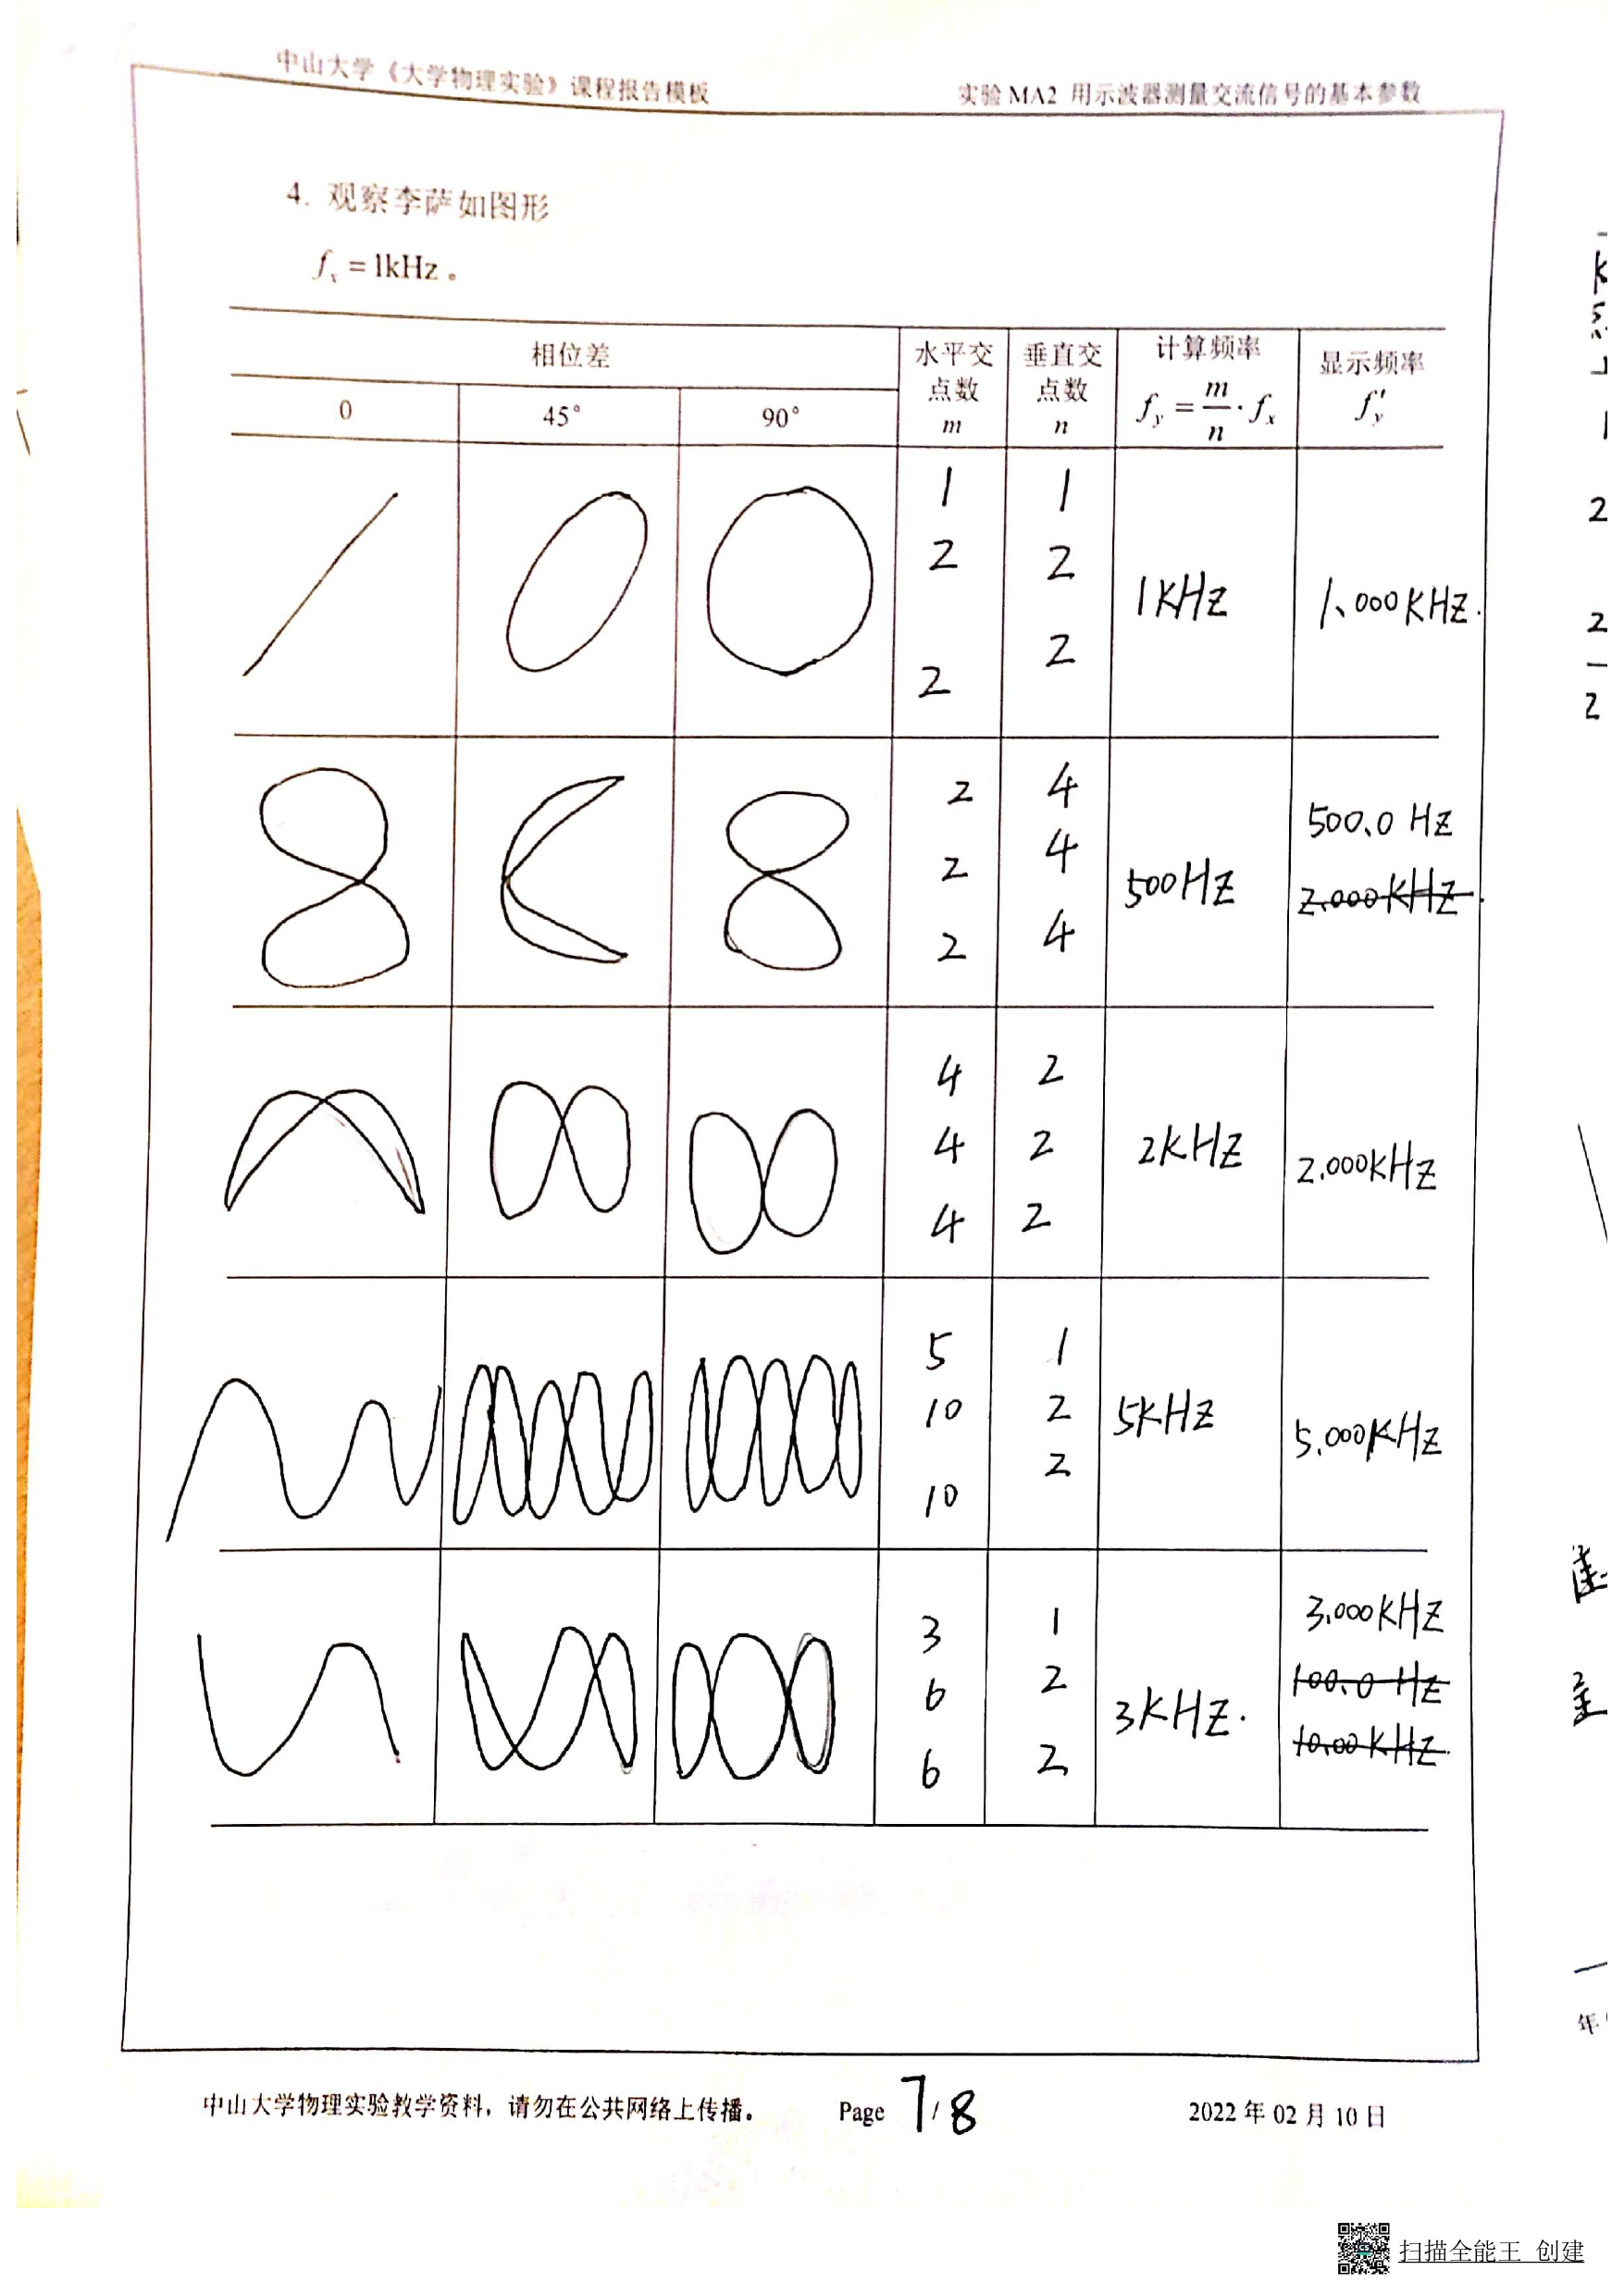 中山大学《大学物理实验》课程报告模板 实验 MA2 用示波器测量交流信号的基本参数
4. 观察李萨如图形
fx = 1kHz 。
相位差 水平交点数 m 垂直交点数 n 计算频率 fy = m/n · fx 显示频率 f'y
0 45° 90°
1 1
2 2
1KHZ 1.000KHZ.
2 2
2 4
500.0 HZ
2 4
500HZ 2.000KHZ.
2 4
4 2
4 2 2KHZ 2.000KHZ
4 2
5 1
10 2 5KHZ 5.000KHZ
10 2
3 1 3.000KHZ
6 2 100.0 HZ
3KHZ. 10.00KHZ.
6 2
中山大学物理实验教学资料，请勿在公共网络上传播。 Page 7/8 2022 年 02 月 10 日
扫描全能王 创建